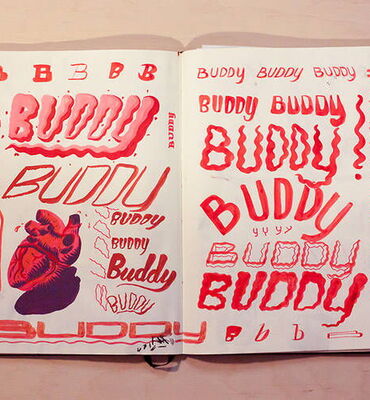 B B B B B
BUDDY
BUDDY
BUDDY
BUDDY
BUDDY
Buddy
BUDDY
BUDDY
BUDDY BUDDY BUDDY
BUDDY BUDDY
BUDDY
BUDDY
Y Y Y Y
BUDDY
BUDDY
B b b